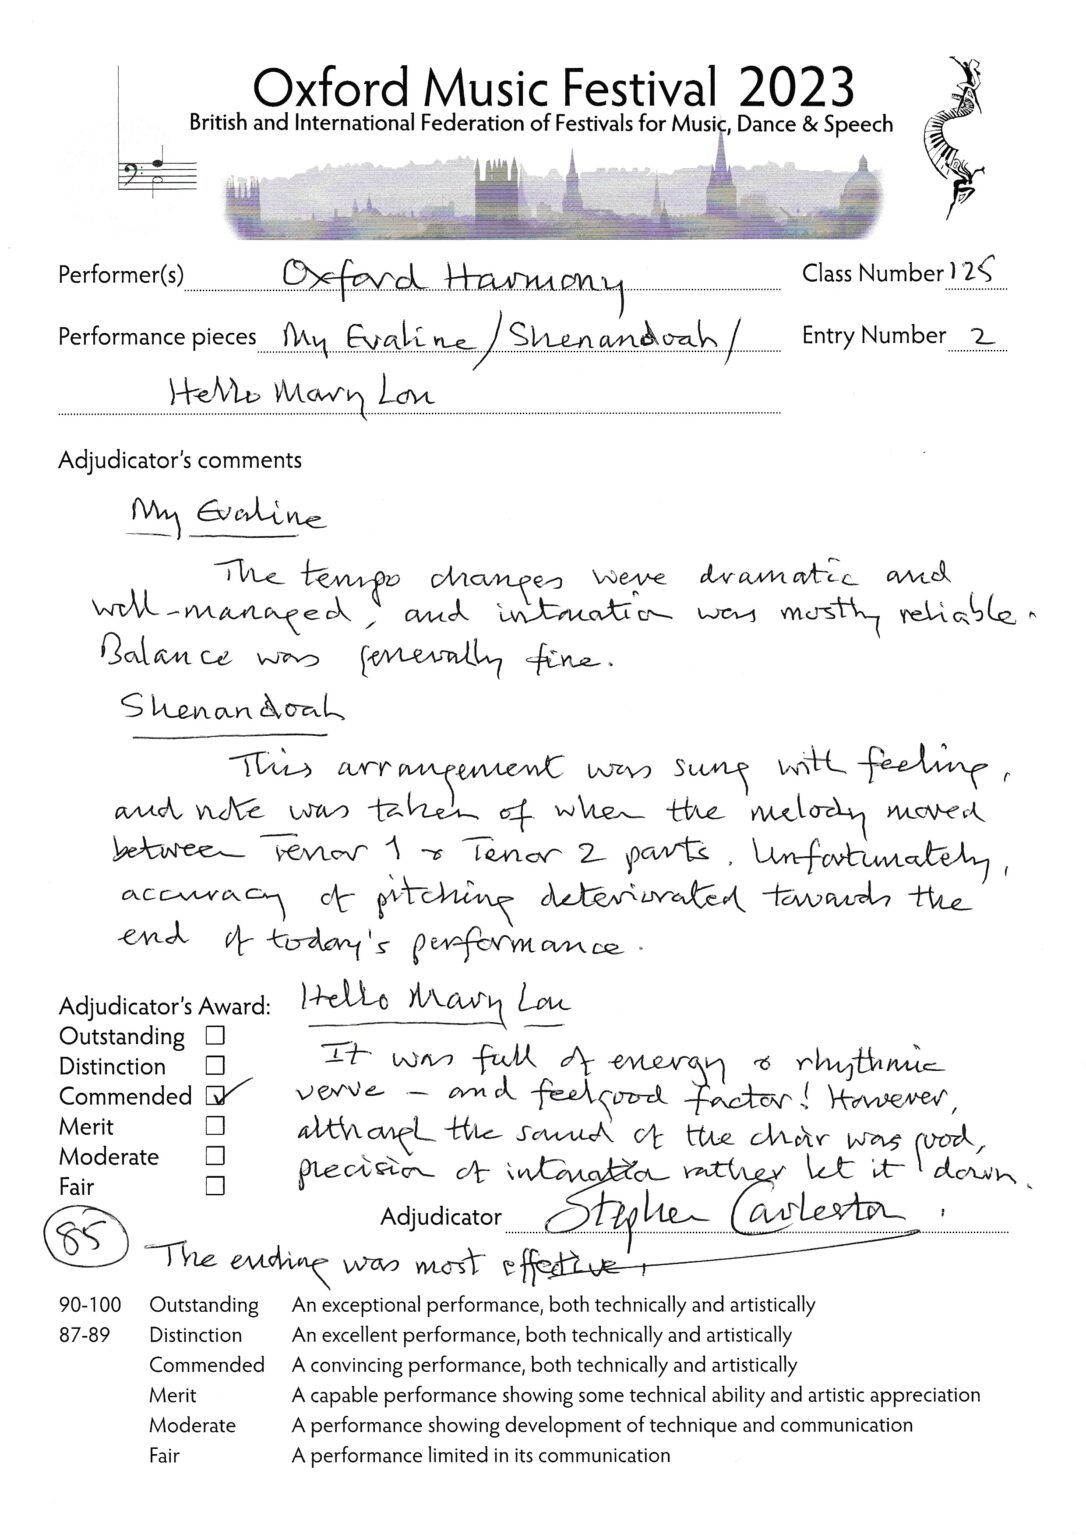 Oxford Music Festival 2023
British and International Federation of Festivals for Music, Dance & Speech
Performer(s) Oxford Harmony Class Number 125
Performance pieces My Evaline / Shenandoah / Entry Number 2
Hello Mary Lou
Adjudicator's comments
My Evaline
The tempo changes were dramatic and
well-managed, and intonation was mostly reliable.
Balance was generally fine.
Shenandoah
This arrangement was sung with feeling,
and note was taken of when the melody moved
between Tenor 1 & Tenor 2 parts. Unfortunately,
accuracy of pitching deteriorated towards the
end of today's performance.
Adjudicator's Award: Hello Mary Lou
Outstanding
Distinction It was full of energy & rhythmic
Commended ✓ verve – and feelgood factor! However,
Merit although the sound of the choir was good,
Moderate precision of intonation rather let it down.
Fair
Adjudicator Stephen Carleston
85 The ending was most effective.
90-100 Outstanding An exceptional performance, both technically and artistically
87-89 Distinction An excellent performance, both technically and artistically
Commended A convincing performance, both technically and artistically
Merit A capable performance showing some technical ability and artistic appreciation
Moderate A performance showing development of technique and communication
Fair A performance limited in its communication